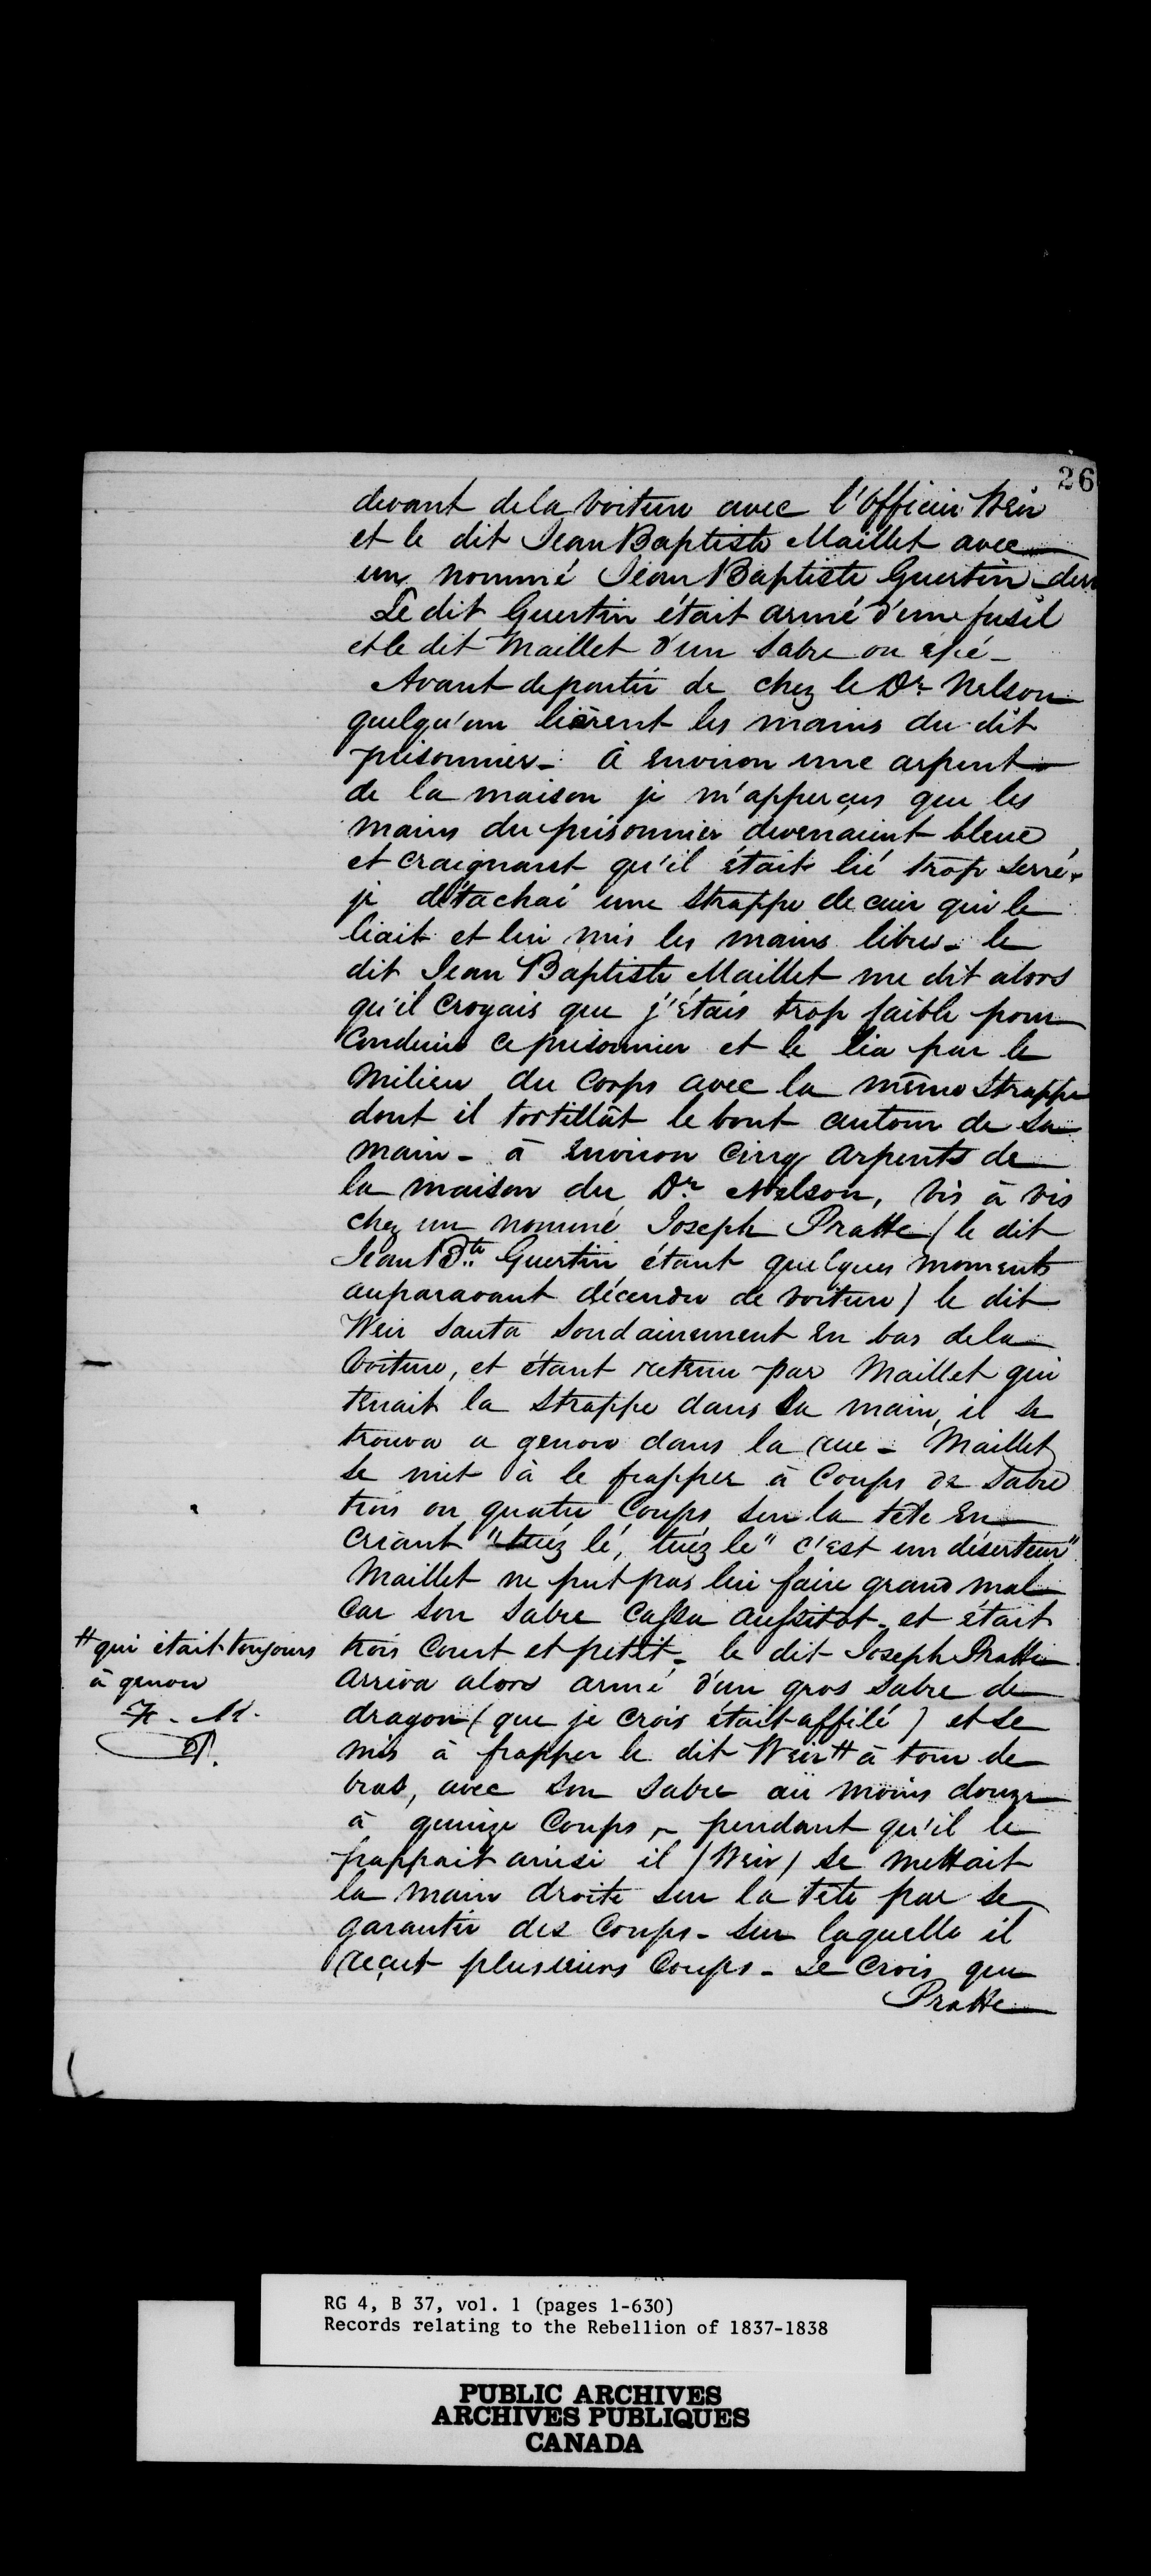 26
devant de la voiture avec l'officier Weir
et le dit Jean Baptiste Maillet avec
un nommé Jean Baptiste Guertin der
Le dit Guertin était armé d'une fusil
et le dit Maillet d'un sabre ou épé -
Avant de partir de chez le Dr Nelson
quelqu'un lièrent les mains du dit
prisonnier - à environ une arpent
de la maison je m'apperçus que les
mains du prisonnier devenaient bleue
et craignant qu'il était lié trop serré -
je détachai une strappe de cuir qui le
liait et lui mis les mains libres - le
dit Jean Baptiste Maillet me dit alors
qu'il croyais que j'étais trop faible pour
Conduire ce prisonnier et le lia par le
milieu du corps avec la même strappe
dont il tortillât le bout autour de sa
main - à environ cinq arpents de
la maison du Dr Nelson, vis à vis
chez un nommé Joseph Pratte (le dit
Jean Bte Guertin étant quelques moments
auparavant décendu de voiture) le dit
Weir sauta soudainement en bas de la
voiture, et étant retenu par Maillet qui
tenait la strappe dans sa main, il se
trouva a genou dans la rue - Maillet
se mit à le frapper à coups de sabre
trois ou quatre coups sur la tête en
criant "tuéz lé, tuéz le" c'est un déserteur"
Maillet ne put pas lui faire grand mal
car son sabre cassa aussitot - et était
très court et petit - le dit Joseph Pratte
arriva alors armé d'un gros sabre de
dragon (que je crois était affilé) et se
mis à frapper le dit Weir # à tour de
bras, avec son sabre au moins douze
à quinze coups, - pendant qu'il le
frappait ainsi il (Weir) se mettait
la main droite sur la tête par se
garantir des coups - sur laquelle il
reçut plusieurs coups - Je crois que
Pratte
# qui était toujours
à genou
F. M.
RG 4, B 37, vol. 1 (pages 1-630)
Records relating to the Rebellion of 1837-1838
PUBLIC ARCHIVES
ARCHIVES PUBLIQUES
CANADA